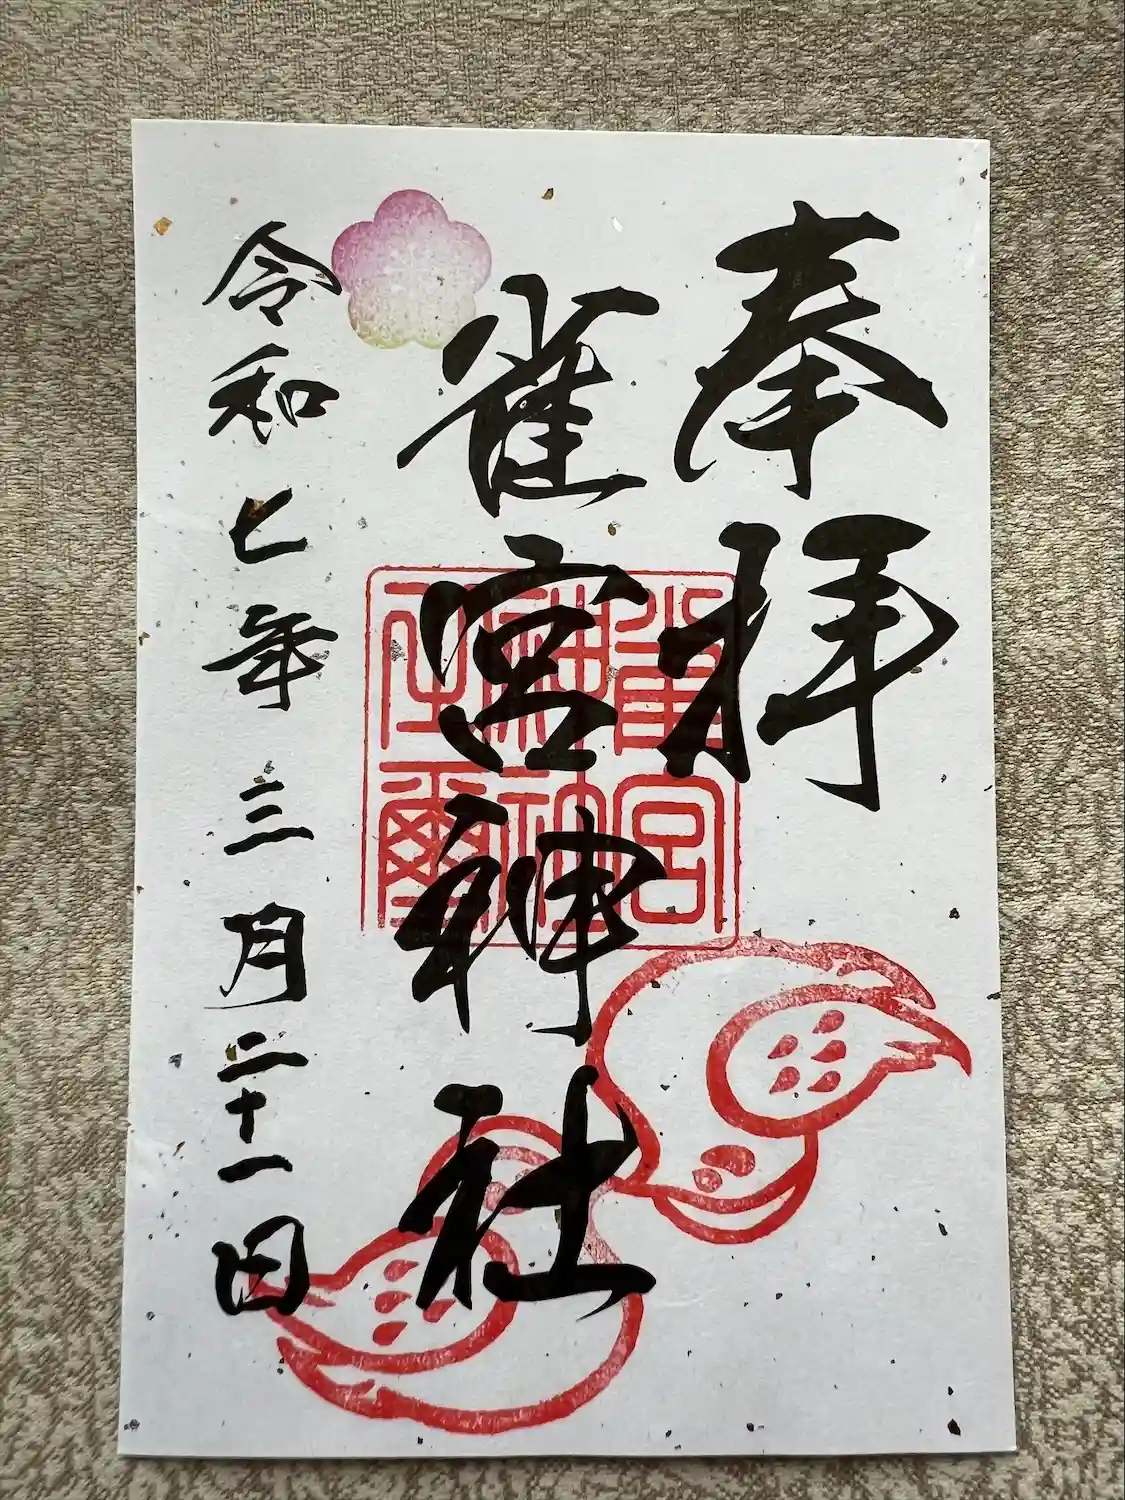 奉拝
雀宮神社
雀宮神社璽
令和七年三月二十一日